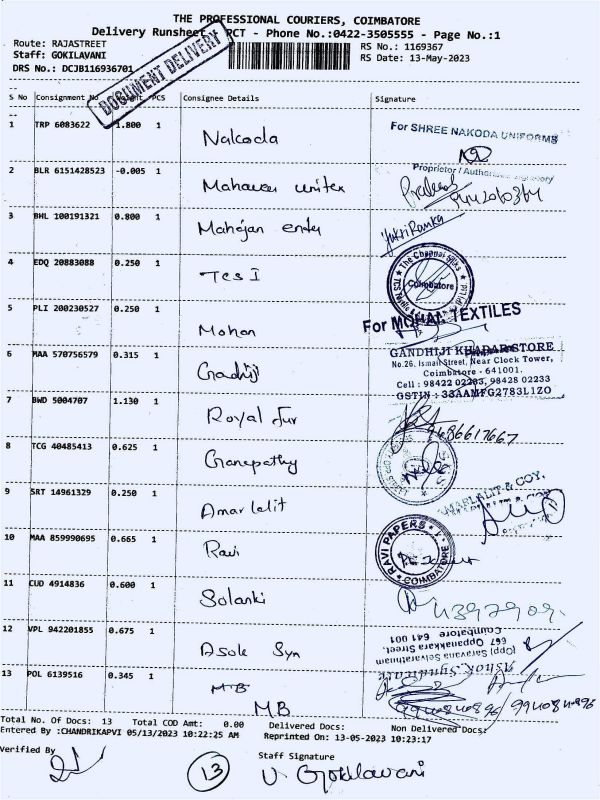 THE PROFESSIONAL COURIERS, COIMBATORE
Delivery Runsheet - PCT - Phone No.:0422-3505555 - Page No.:1
Route: RAJASTREET
Staff: GOKILAVANI
DRS No.: DCJB116936701
RS No.: 1169367
RS Date: 13-May-2023
DOCUMENT DELIVERY
S No Consignment No Weight PCS Consignee Details Signature
1 TRP 6083622 1.800 1 Nakoda
For SHREE NAKODA UNIFORMS
Proprietor / Authorised Signatory
2 BLR 6151428523 -0.005 1 Mahaveer unitex
3 BHL 100191321 0.800 1 Mahajan
4 EDQ 20883088 0.250 1 TCS I
The Chennai Silks
Coimbatore
5 PLI 200230527 0.250 1 Mohan
For MOHAN TEXTILES
6 MAA 570756579 0.315 1 Gandhiji
GANDHIJI KHADAR STORE
No.26, Ismail Street, Near Clock Tower,
Coimbatore - 641001.
Cell : 98422 02233, 98428 02233
GSTIN : 33AAMFG2783L1ZO
7 BWD 5004707 1.130 1 Royal fur
8 TCG 40485413 0.625 1 Ganepathy
9 SRT 14961329 0.250 1 Amar lalit
AMARLALIT & COY,
10 MAA 859990695 0.665 1 Ravi
RAVI PAPERS
COIMBATORE
11 CUD 4914836 0.600 1 Solanki
12 VPL 942201855 0.675 1 Asok Syn
Ashok Syndicate
(Opp) Saravana Selvarathinam
667 Oppanakkara Street,
Coimbatore 641 001
13 POL 6139516 0.345 1 MB
MB
9940840896
Total No. Of Docs: 13 Total COD Amt: 0.00 Delivered Docs: Non Delivered Docs:
Entered By :CHANDRIKAPVI 05/13/2023 10:22:25 AM Reprinted On: 13-05-2023 10:23:17
Verified By
13
Staff Signature
V. Gokilavani